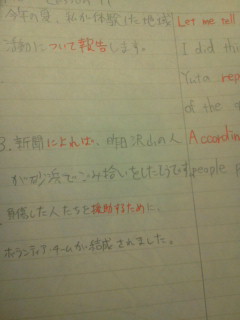 今年の夏、私が体験した地域
活動について報告します。
Let me tell
I did thi
Yuta rep
of the a
3. 新聞によれば、昨日沢山の人
が砂浜でごみ拾いをしたそうです。
Accordin
people p
負傷した人たちを援助するために、
ボランティア・チームが結成されました。